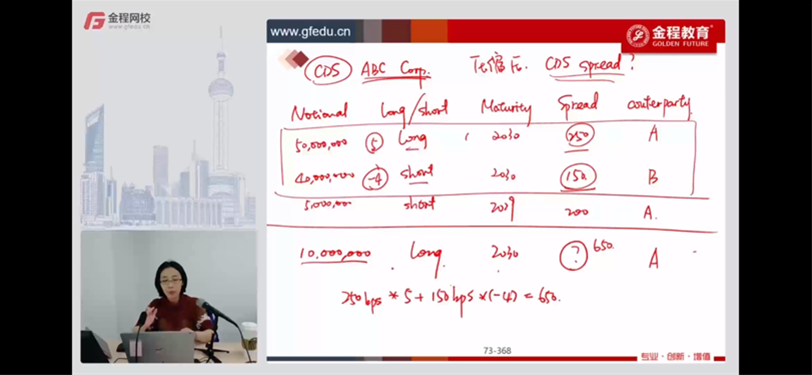 金程网校
www.gfedu.cn
www.gfedu.cn
金程教育
GOLDEN FUTURE
CDS ABC Corp. CDS spread?
Notional Long/short Maturity Spread couterparty
50,000,000 5 Long 2030 250 A
40,000,000 -4 short 2030 150 B
5,000,000 short 2029 200 A.
10,000,000 Long 2030 ? 650 A
250bps * 5 + 150bps * (-4) = 650.
73-368
专业·创新·增值